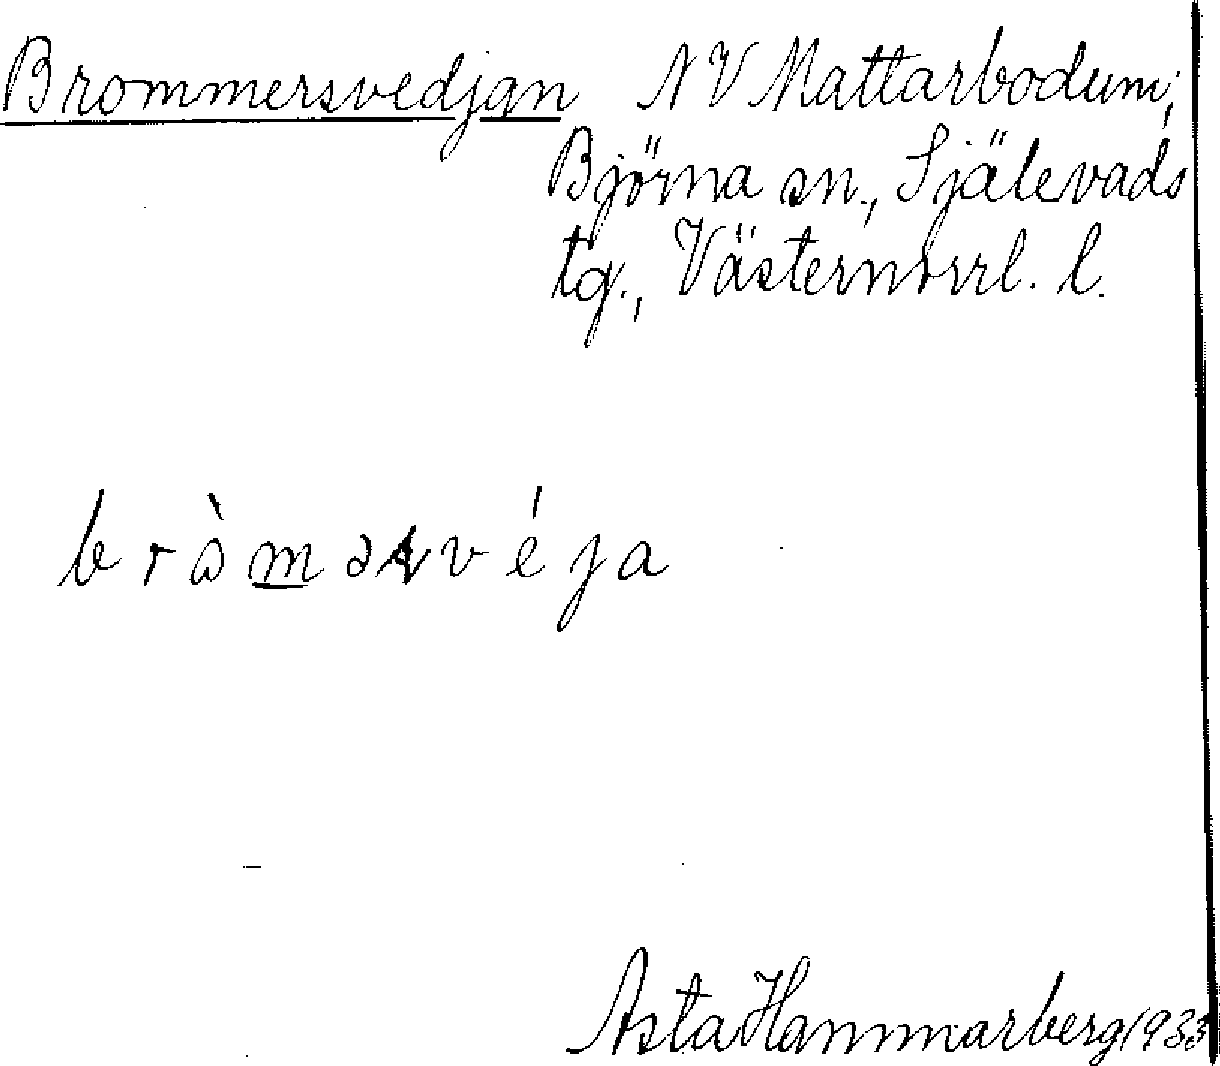 Brommersvedjan NV Mattarbodum,
Björna sn., Själevads
tg., Västernorrl. l.
Asta Hammarberg 1933